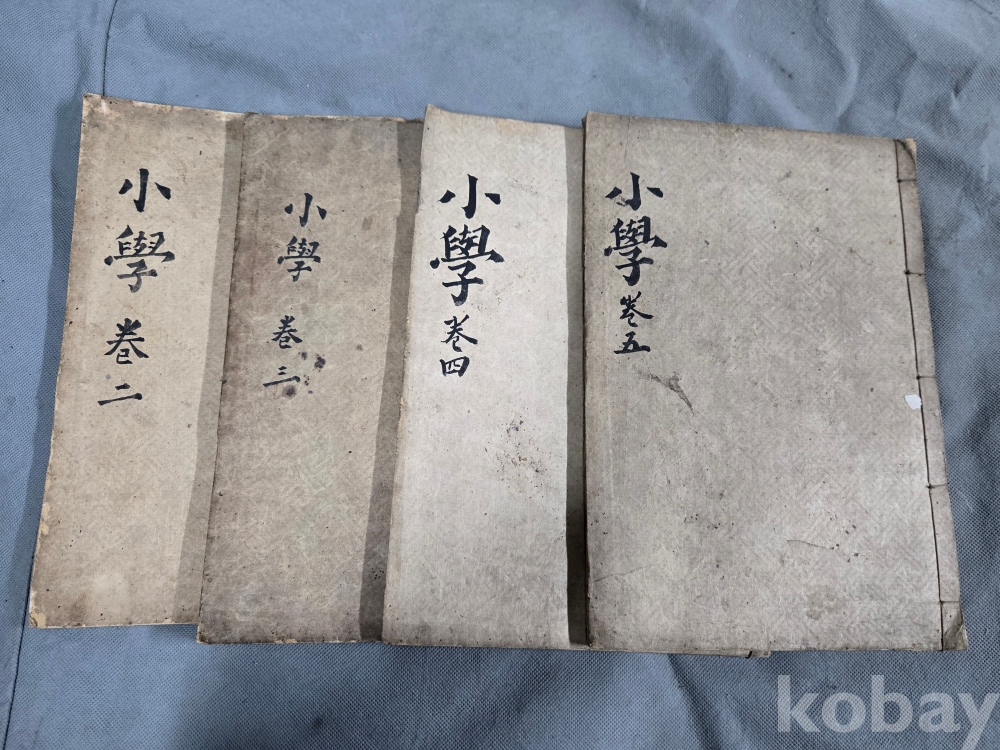 小學 卷二
小學 卷三
小學 卷四
小學 卷五
kobay